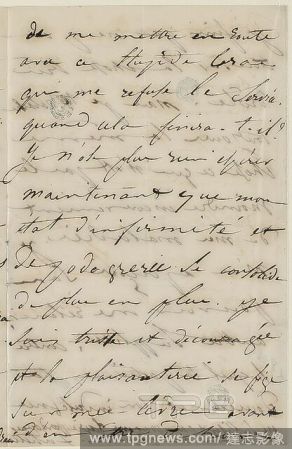 de me mettre en route
avec ce stupide bras
qui me refuse le servi-
quand cela finira-t-il?
Je n'ose plus rien espérer
maintenant que mon
état d'infirmité et
de podagrerie se consolide
de plus en plus. Je
suis triste et découragée
et la plaisanterie se fige
sur mes lèvres avant
d'en
www.tpgnews.com 達志影像